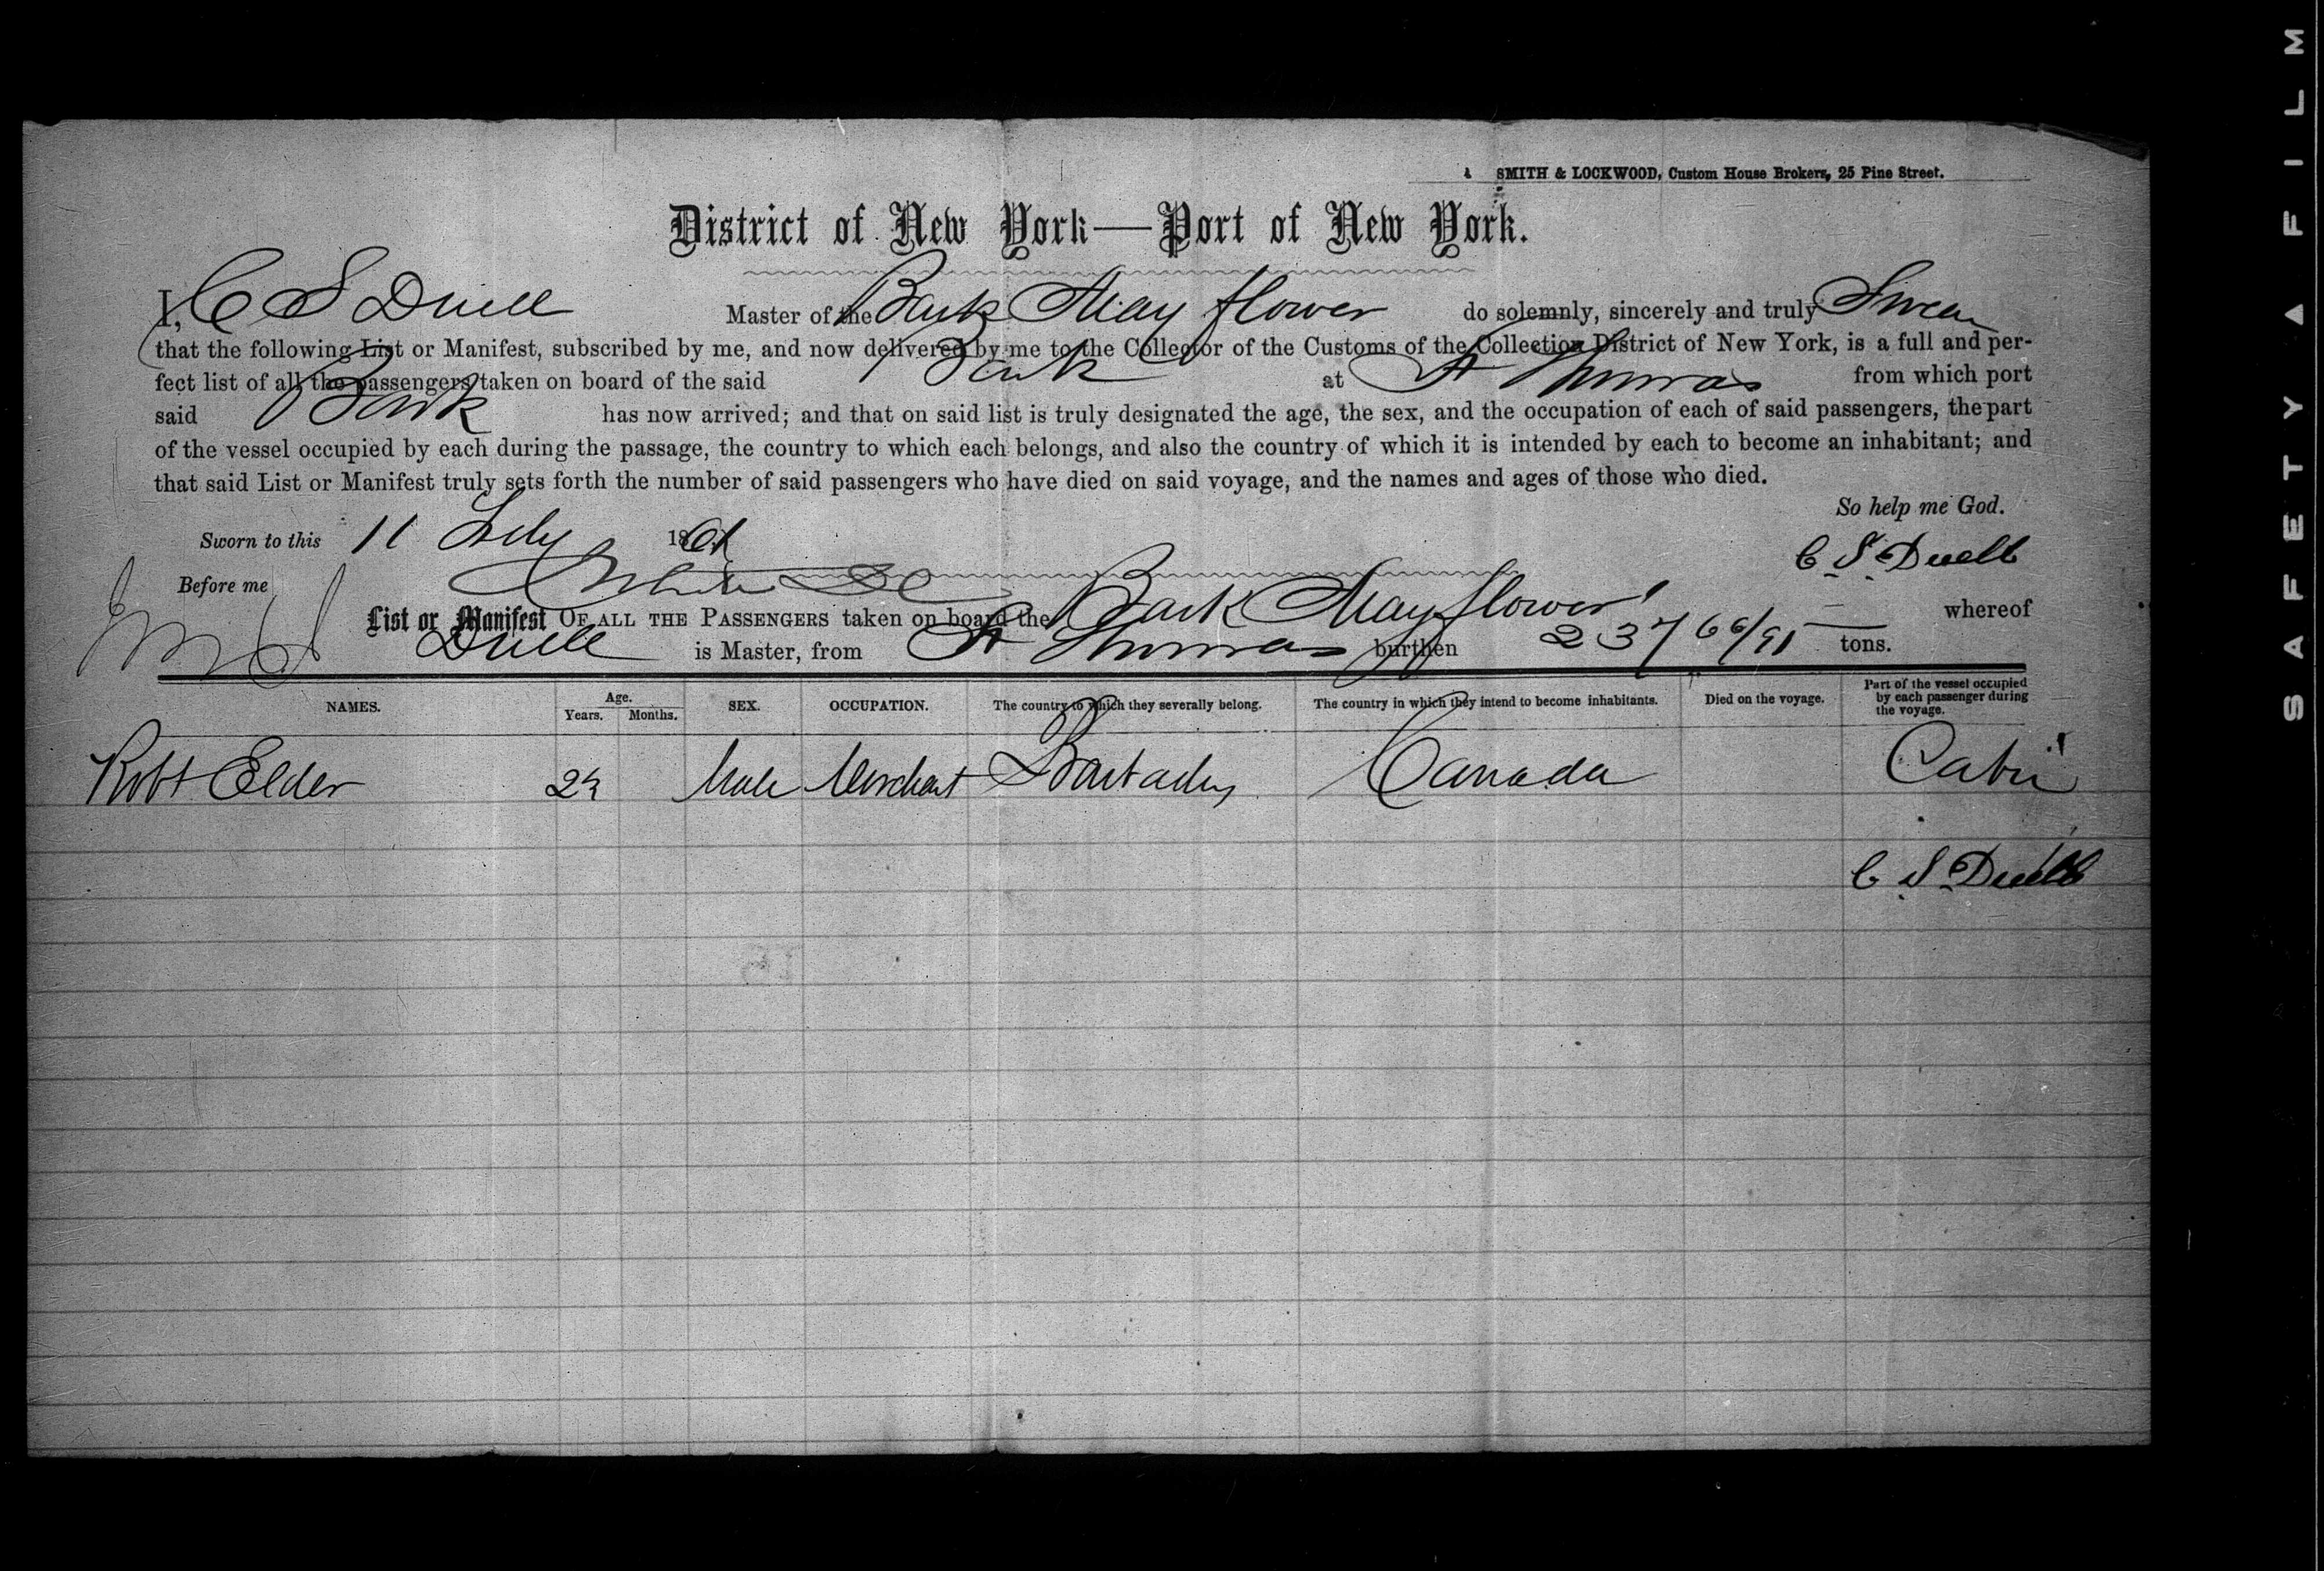 SMITH & LOCKWOOD, Custom House Brokers, 25 Pine Street.
District of New York—Port of New York.
I, C S Duell Master of the Bark May flower do solemnly, sincerely and truly Swear
that the following List or Manifest, subscribed by me, and now delivered by me to the Collector of the Customs of the Collection District of New York, is a full and per-
fect list of all the passengers taken on board of the said Bark at St Thomas from which port
said Bark has now arrived; and that on said list is truly designated the age, the sex, and the occupation of each of said passengers, the part
of the vessel occupied by each during the passage, the country to which each belongs, and also the country of which it is intended by each to become an inhabitant; and
that said List or Manifest truly sets forth the number of said passengers who have died on said voyage, and the names and ages of those who died.
So help me God.
Sworn to this 11 1861
C S Duell
Before me
List or Manifest OF ALL THE PASSENGERS taken on board the Bark Mayflower whereof
Duell is Master, from St Thomas burthen 237 66/95 tons.
NAMES. Age. Years. Months. SEX. OCCUPATION. The country to which they severally belong. The country in which they intend to become inhabitants. Died on the voyage. Part of the vessel occupied by each passenger during the voyage.
Robt Elder Male Merchant Barbadoes Canada Cabin
C S Duell
SAFETY FILM